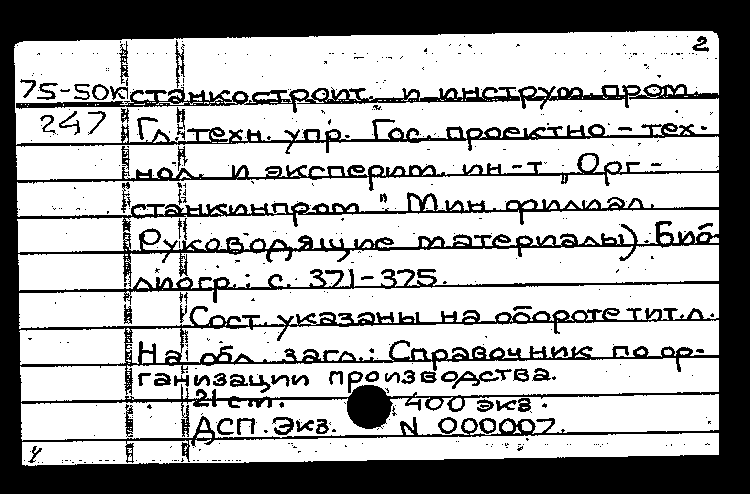 2
75-50к станкостроит. и инструм. пром.
247 Гл. техн. упр. Гос. проектно-тех-
нол. и эксперим. ин-т „Орг-
станкинпром". Мин. филиал.
Руководящие материалы). Биб-
лиогр.: с. 371-375.
Сост. указаны на обороте тит. л.
На обл. загл.: Справочник по ор-
ганизации производства.
21 см. 400 экз.
ДСП. Экз. N 000007.